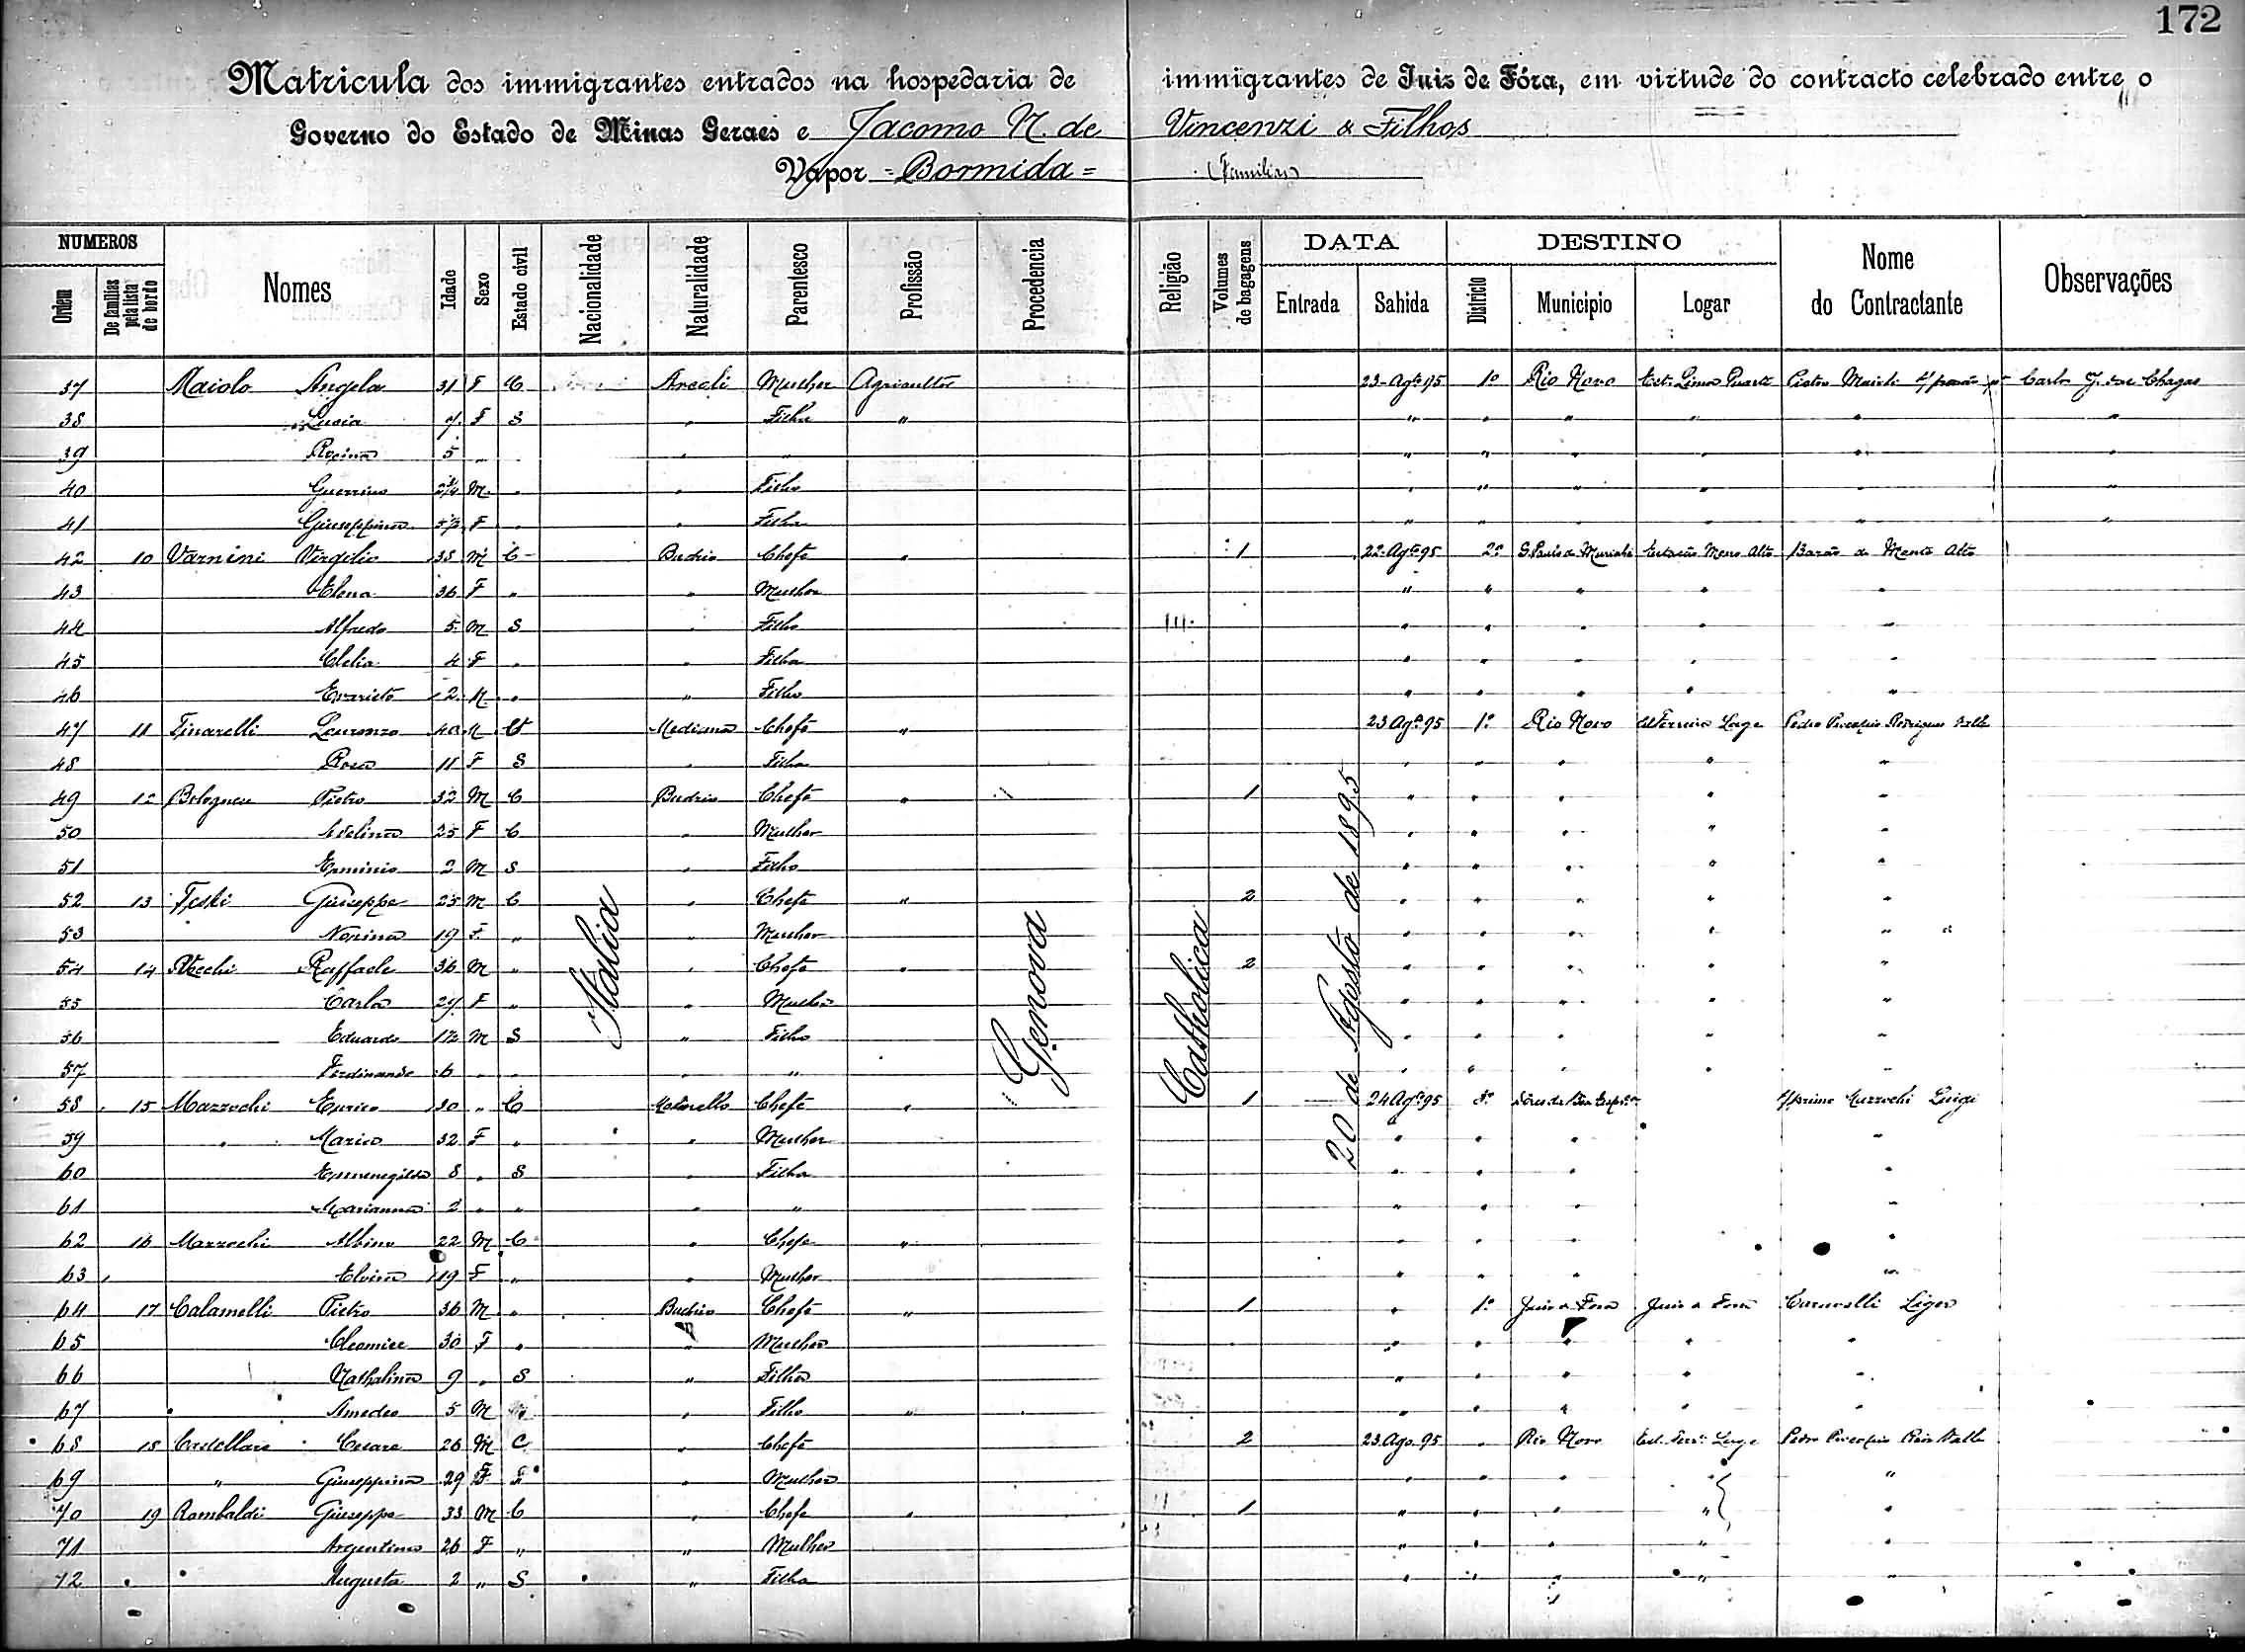 172
Matricula dos immigrantes entrados na hospedaria de immigrantes de Juiz de Fóra, em virtude do contracto celebrado entre o
Governo do Estado de Minas Geraes e Jacomo N. de Vincenzi & Filhos
Vapor = Bormida = (Familias)
NUMEROS Nomes Idade Sexo Estado civil Nacionalidade Naturalidade Parentesco Profissão Procedencia Religião Volumes de bagagens DATA DESTINO Nome do Contractante Observações
Ordem De familias pela lista de bordo Entrada Sahida Districto Municipio Logar
37 Maiolo Angela 31 F C Mulher Agricultor 23-Agto 95 1º Rio Novo Pietro Carlos J. das Chagas
38 Lucia 7 F S " Filha " " " " " " "
39 5 " " " " " " " " " "
40 M " " Filho " " " " " "
41 Giuseppina F " " Filha " " " " " "
42 10 Varnini Virgilio 38 M C Budrio Chefe " 1 22-Agto 95 2º S. Paulo de Muriahé Estação Morro Alto Barão do Monte Alto
43 Elena 36 F " " Mulher " " " " "
44 Alfredo 5 M S " Filho " " " " "
45 Clelia 4 F " " Filha " " " " "
46 Evaristo 2 M " " Filho " " " " "
47 11 Finarelli Lourenzo 40 M Medicina Chefe " 23 Agto 95 1º Rio Novo Ferreira Lage Pedro Procopio Rodrigues Valle
48 Rosa 11 F S " Filha " " " " "
49 12 Pietro 32 M C Budrio Chefe " 1 " " " " "
50 Adelina 25 F C " Mulher " " " " "
51 Erminio 2 M S " Filho " " " " "
52 13 Giuseppe 25 M C " Chefe " 2 " " " " "
53 Norina 19 F " " Mulher " " " " "
54 14 Raffaele 36 M " " Chefe " 2 " " " " "
55 Carla 27 F " " Mulher " " " " "
56 Eduardo M S " Filho " " " " "
57 Ferdinando 6 " " " " " " " " "
58 15 Mazzochi Enrico 30 " C Chefe " 1 24 Agto 95 3º Luigi
59 " Maria 32 F " " Mulher " " " "
60 Ermenegilda 8 " S " Filha " " " "
61 Marianna 2 " " " " " " " "
62 16 Mazzochi Albino 22 M C " Chefe " " " " "
63 Elvira 19 F " " Mulher " " " "
64 17 Calamelli Pietro 36 M " Budrio Chefe " 1 " 1º Juiz de Fora Juiz de Fora
65 Cleonice 30 F " " Mulher " " " " "
66 Nathalina 9 " S " Filha " " " " "
67 Amedeo 5 M " " Filho " " " " " "
68 18 Castellari Cesare 26 M C " Chefe 2 23 Ago 95 " Rio Novo Est. Ferrª Lage Pedro Procopio Valle
69 " Giuseppina 29 F " Mulher " " " " "
70 19 Rambaldi Giuseppe 33 M C " Chefe " 1 " " " " "
71 Argentina 26 F " " Mulher " " " " "
72 Augusta 2 " S " Filha " " " " "
Italia
Genova
Catholica
20 de Agosto de 1895